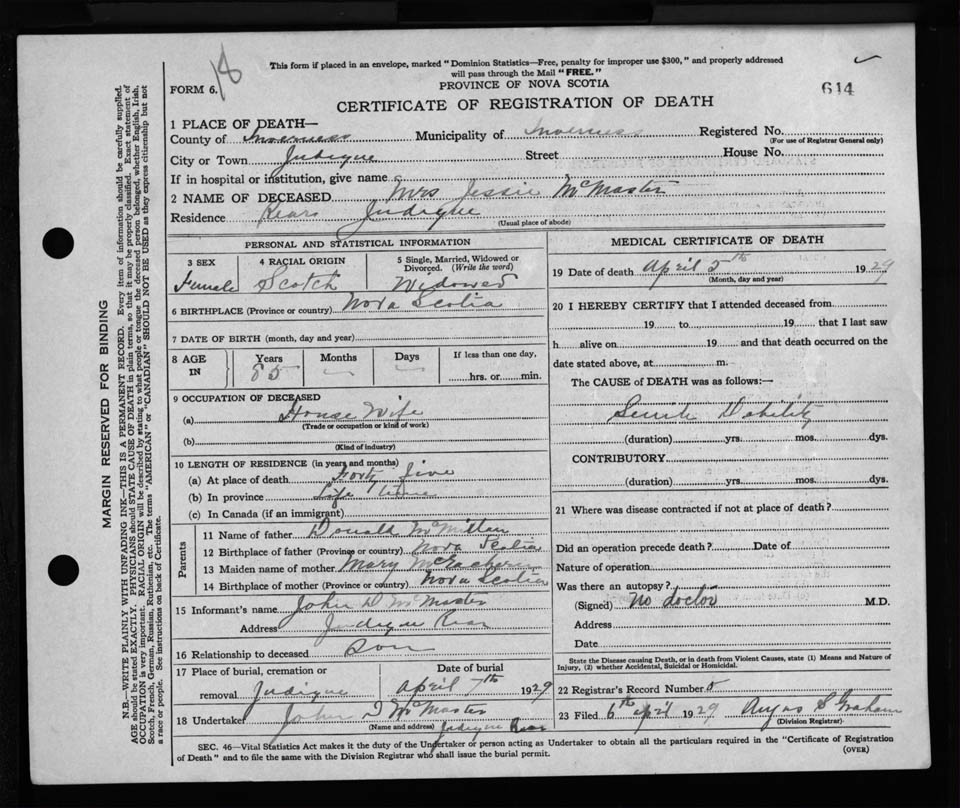 18
This form if placed in an envelope, marked "Dominion Statistics—Free, penalty for improper use $300," and properly addressed
will pass through the Mail "FREE."
FORM 6.
PROVINCE OF NOVA SCOTIA
614
CERTIFICATE OF REGISTRATION OF DEATH
1 PLACE OF DEATH—
County of Inverness Municipality of Inverness Registered No.
(For use of Registrar General only)
City or Town Judique Street House No.
If in hospital or institution, give name
2 NAME OF DECEASED Mrs Jessie McMaster
Residence Rear Judique
(Usual place of abode)
PERSONAL AND STATISTICAL INFORMATION
3 SEX 4 RACIAL ORIGIN 5 Single, Married, Widowed or
Divorced. (Write the word)
Female Scotch Widowed
6 BIRTHPLACE (Province or country) Nova Scotia
7 DATE OF BIRTH (month, day and year)
8 AGE IN Years Months Days If less than one day,
85 — — hrs. or min.
9 OCCUPATION OF DECEASED
(a) House Wife
(Trade or occupation or kind of work)
(b)
(Kind of industry)
10 LENGTH OF RESIDENCE (in years and months)
(a) At place of death Forty five
(b) In province Life time
(c) In Canada (if an immigrant)
Parents
11 Name of father Donald McMillan
12 Birthplace of father (Province or country) Nova Scotia
13 Maiden name of mother Mary McEachern
14 Birthplace of mother (Province or country) Nova Scotia
15 Informant's name John D McMaster
Address Judique Rear
16 Relationship to deceased Son
17 Place of burial, cremation or Date of burial
removal Judique April 7th 1929
18 Undertaker John D McMaster
(Name and address) Judique Rear
MEDICAL CERTIFICATE OF DEATH
19 Date of death April 5th 1929
(Month, day and year)
20 I HEREBY CERTIFY that I attended deceased from
19 to 19 that I last saw
h alive on 19 and that death occurred on the
date stated above, at m.
The CAUSE of DEATH was as follows:—
Senile Dability
(duration) yrs. mos. dys.
CONTRIBUTORY
(duration) yrs. mos. dys.
21 Where was disease contracted if not at place of death?
Did an operation precede death? Date of
Nature of operation
Was there an autopsy?
(Signed) No doctor M.D.
Address
Date
State the Disease causing Death, or in death from Violent Causes, state (1) Means and Nature of
Injury, (2) whether Accidental, Suicidal or Homicidal.
22 Registrar's Record Number 5
23 Filed 6th april 1929 Angus S Graham
(Division Registrar)
SEC. 46—Vital Statistics Act makes it the duty of the Undertaker or person acting as Undertaker to obtain all the particulars required in the "Certificate of Registration
of Death" and to file the same with the Division Registrar who shall issue the burial permit.
(OVER)
MARGIN RESERVED FOR BINDING
N.B.—WRITE PLAINLY WITH UNFADING INK—THIS IS A PERMANENT RECORD. Every item of information should be carefully supplied.
AGE should be stated EXACTLY. PHYSICIANS should STATE CAUSE OF DEATH in plain terms, so that it may be properly classified. Exact statement of
OCCUPATION is very important. RACIAL ORIGIN will be described by stating to what people or tongue the deceased person belonged, whether English, Irish,
Scotch, French, German, Russian, Ruthenian, etc. The terms "AMERICAN" or "CANADIAN" SHOULD NOT BE USED as they express citizenship but not
a race or people. See instructions on back of Certificate.